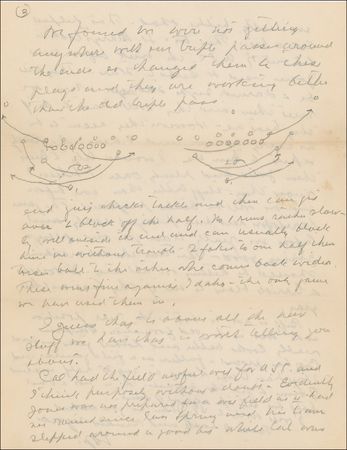 3
We found we were not getting
anywhere with our triple passes around
the ends so changed them to these
plays and they are working better
than the old triple pass
end just checks tackle and then can get
over to block off the half. No 1 runs rather slow-
ly well outside end and can usually block
him out without trouble - 2 fakes to one half then
back to the other who comes back
These were fine against Idaho - the only game
we have used them in.
I guess that is about all the new
stuff we have that is worth telling you
about.
Cal had the field awful wet for USC and
I think purposely without a doubt - Evidently
Jones was not prepared for a wet field as it had
not rained since last Spring and his team
slipped around a good bit while Cal was